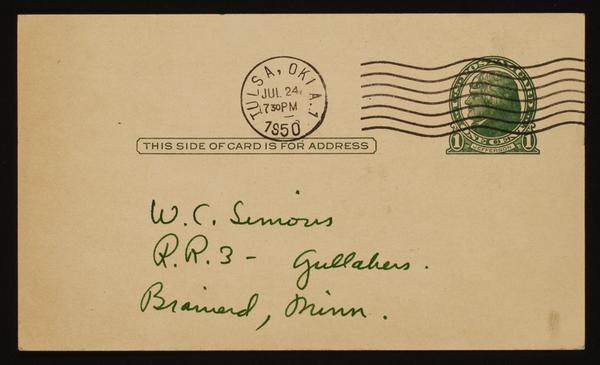 TULSA, OKLA. 1
JUL 24
730 PM
1950
U.S. POSTAL CARD
ONE CENT
1 JEFFERSON 1
THIS SIDE OF CARD IS FOR ADDRESS
W. C. Simons
R.R. 3 - Gullahers.
Brainerd, Minn.